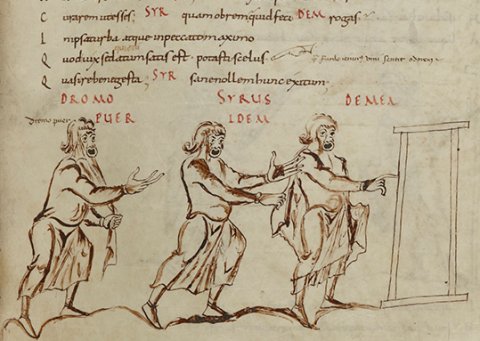 C urarem utesses; SYR quam obrem quid feci DEM rogas?
I nipsa turba. atque inpeccato maximo
Q uod vix sedatum satis est. potasti scelus
Q uasi rebene gesta; SYR sane nollem hunc exitum;
DROMO SYRUS DEMEA
dromo puer PUER IDEM